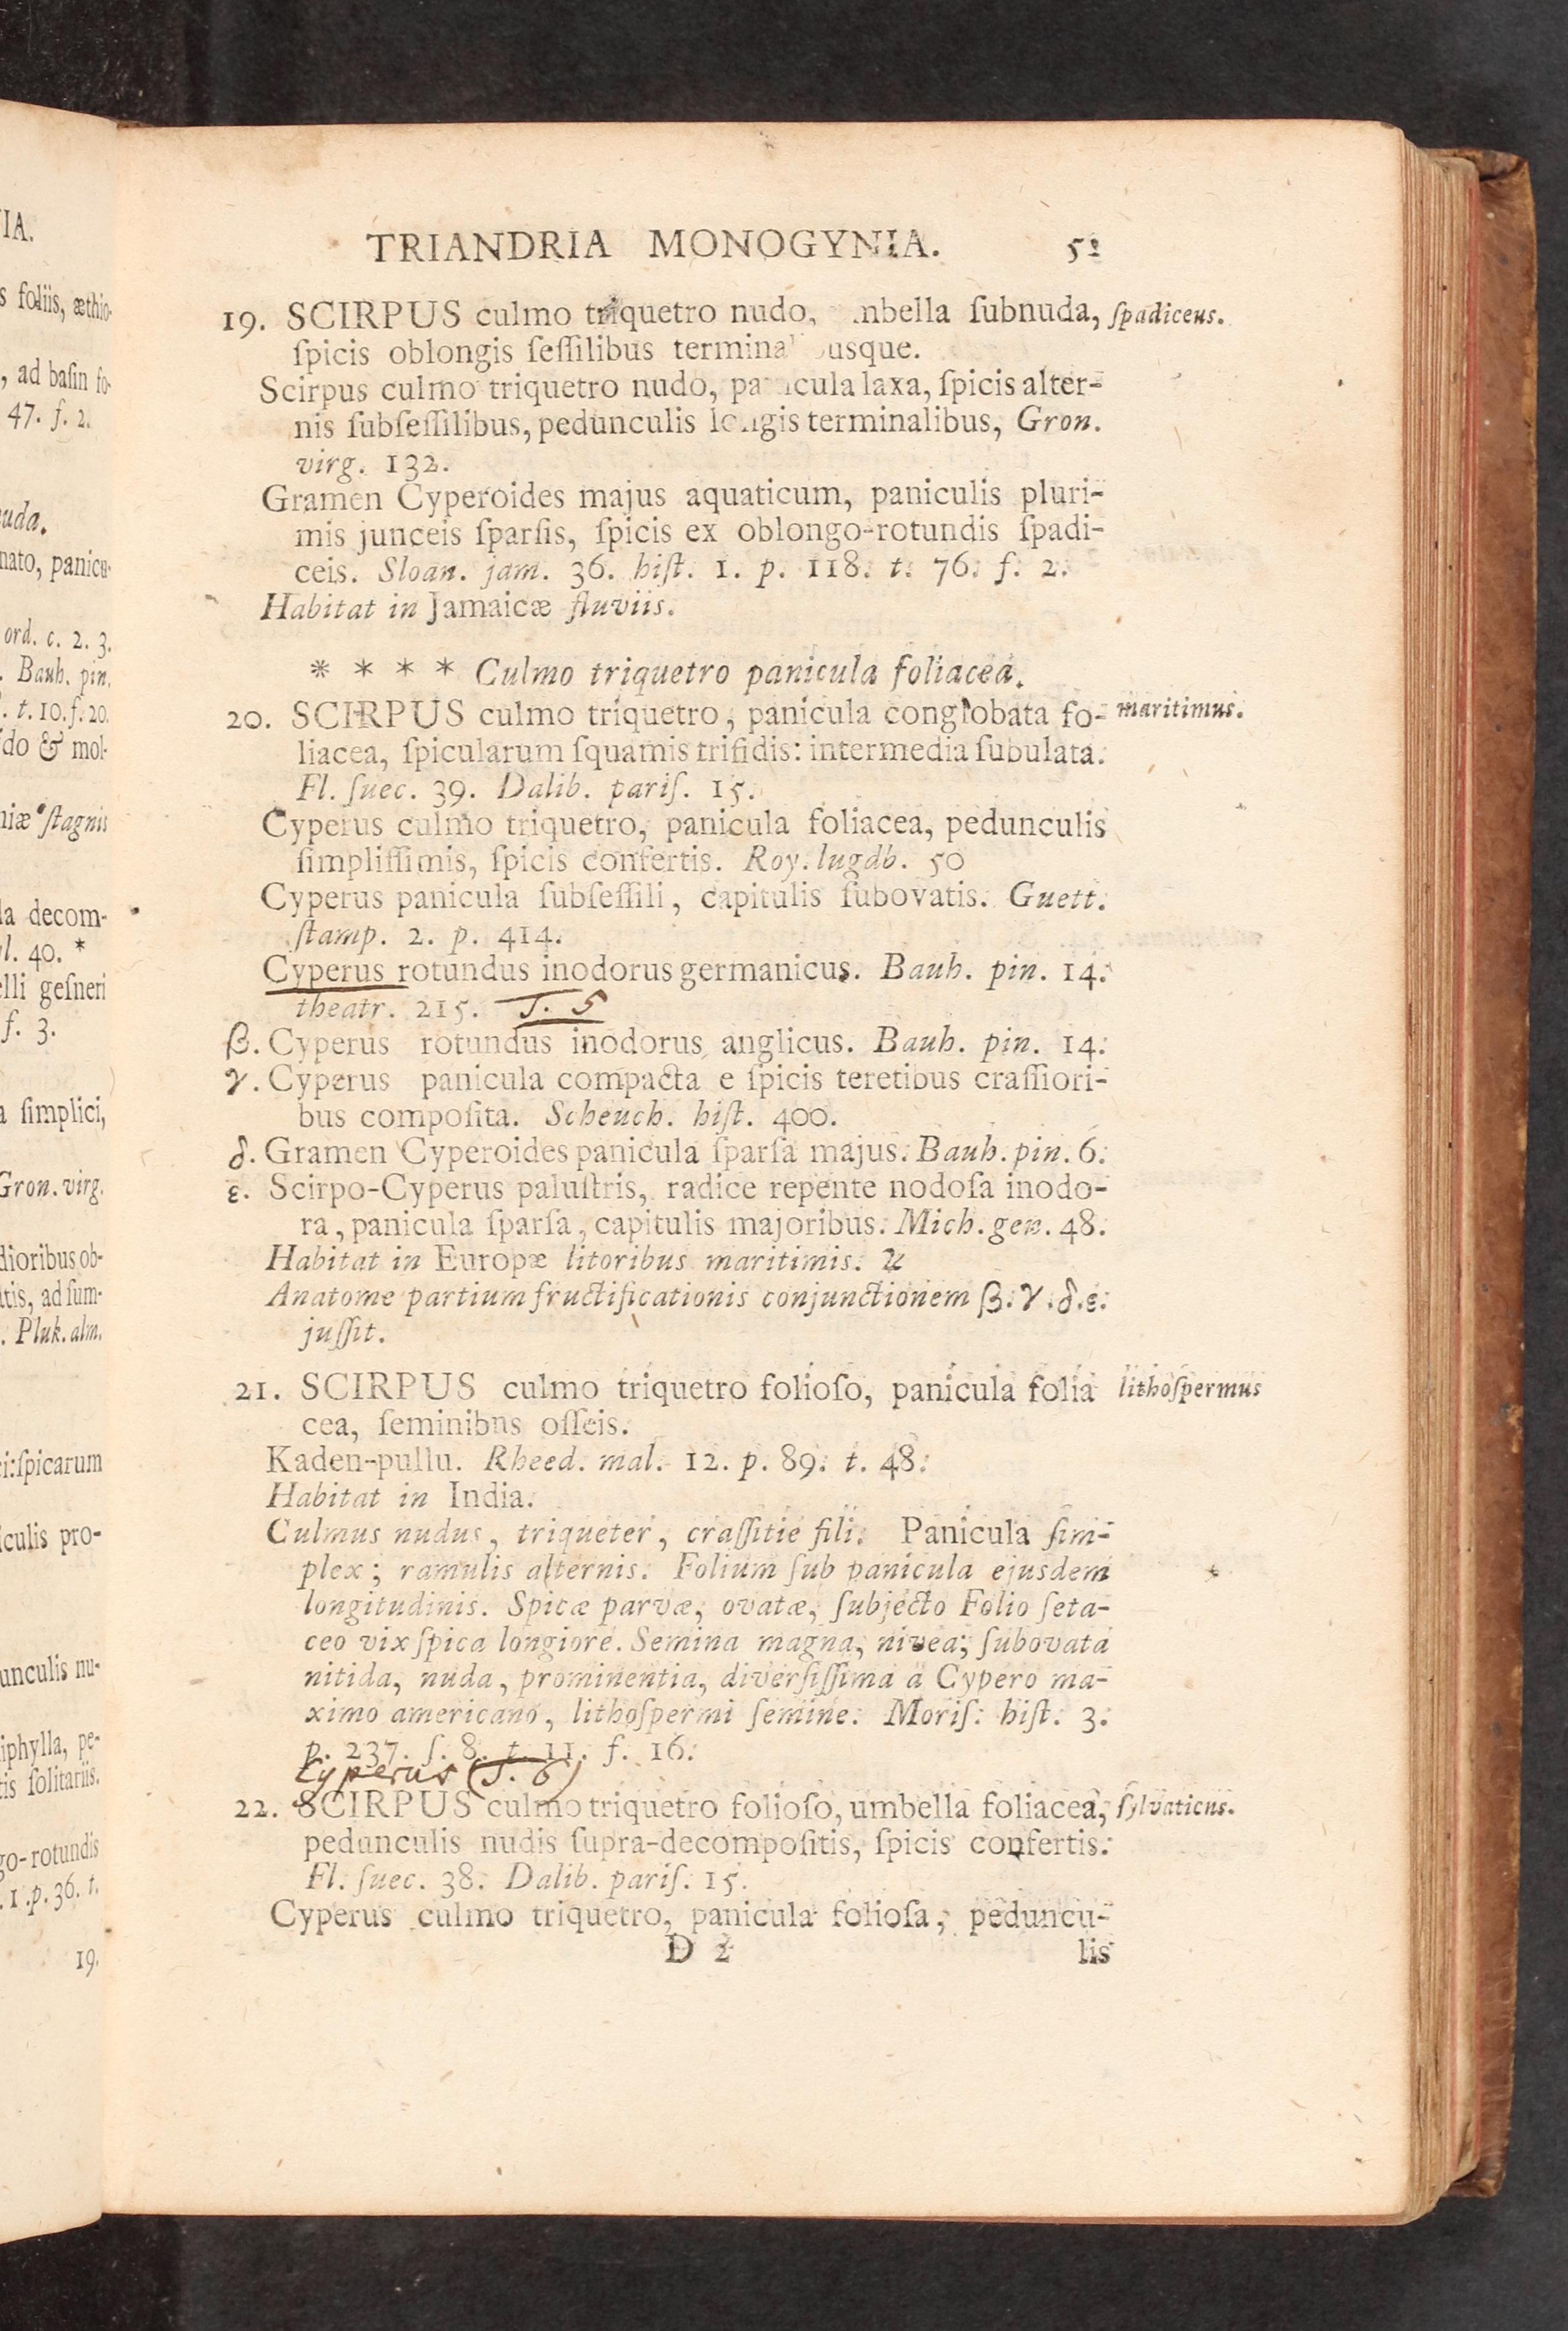 IA.
s foliis, æthio-
, ad basin fo-
47. f. 2.
uda.
nato, panicu-
ord. c. 2. 3.
. Bauh. pin.
. t. 10. f. 20.
do & mol-
niæ stagnis
la decom-
l. 40. *
elli gesneri
f. 3.
a simplici,
Gron. virg.
dioribus ob-
tis, ad sum-
. Pluk. alm.
i: spicarum
iculis pro-
unculis nu-
iphylla, pe-
tis solitariis.
go-rotundis
. 1. p. 36. t.
19.
TRIANDRIA MONOGYNIA. 51
19. SCIRPUS culmo triquetro nudo, mbella ſubnuda, ſpadiceus.
ſpicis oblongis ſeſſilibus terminal busque.
Scirpus culmo triquetro nudo, panicula laxa, ſpicis alter-
nis ſubſeſſilibus, pedunculis longis terminalibus, Gron.
virg. 132.
Gramen Cyperoides majus aquaticum, paniculis pluri-
mis junceis ſparſis, ſpicis ex oblongo-rotundis ſpadi-
ceis. Sloan. jam. 36. hiſt. 1. p. 118. t. 76. f. 2.
Habitat in Jamaicæ fluviis.
* * * * Culmo triquetro panicula foliacea.
20. SCIRPUS culmo triquetro, panicula conglobata fo- maritimus.
liacea, ſpicularum ſquamis trifidis: intermedia ſubulata.
Fl. ſuec. 39. Dalib. pariſ. 15.
Cyperus culmo triquetro, panicula foliacea, pedunculis
ſimpliſſimis, ſpicis confertis. Roy. lugdb. 50
Cyperus panicula ſubſeſſili, capitulis ſubovatis. Guett.
ſtamp. 2. p. 414.
Cyperus rotundus inodorus germanicus. Bauh. pin. 14.
theatr. 215. T. 5
β. Cyperus rotundus inodorus anglicus. Bauh. pin. 14.
γ. Cyperus panicula compacta e ſpicis teretibus craſſiori-
bus compoſita. Scheuch. hiſt. 400.
δ. Gramen Cyperoides panicula ſparſa majus. Bauh. pin. 6.
ε. Scirpo-Cyperus paluſtris, radice repente nodoſa inodo-
ra, panicula ſparſa, capitulis majoribus. Mich. gen. 48.
Habitat in Europæ litoribus maritimis. ♃
Anatome partium fructificationis conjunctionem β. γ. δ. ε.
juſſit.
21. SCIRPUS culmo triquetro folioſo, panicula folia lithoſpermus
cea, ſeminibns oſſeis.
Kaden-pullu. Rheed. mal. 12. p. 89. t. 48.
Habitat in India.
Culmus nudus, triqueter, craſſitie fili. Panicula ſim-
plex; ramulis alternis. Folium ſub panicula ejusdem
longitudinis. Spicæ parvæ, ovatæ, ſubjecto Folio ſeta-
ceo vix ſpica longiore. Semina magna, nivea, ſubovata
nitida, nuda, prominentia, diverſiſſima a Cypero ma-
ximo americano, lithoſpermi ſemine. Moriſ. hiſt. 3.
p. 237. ſ. 8. t. 11. f. 16.
Cyperus (T. 6)
22. SCIRPUS culmo triquetro folioſo, umbella foliacea, ſylvaticus.
pedunculis nudis ſupra-decompoſitis, ſpicis confertis.
Fl. ſuec. 38. Dalib. pariſ. 15.
Cyperus culmo triquetro, panicula folioſa, peduncu-
D 2 lis